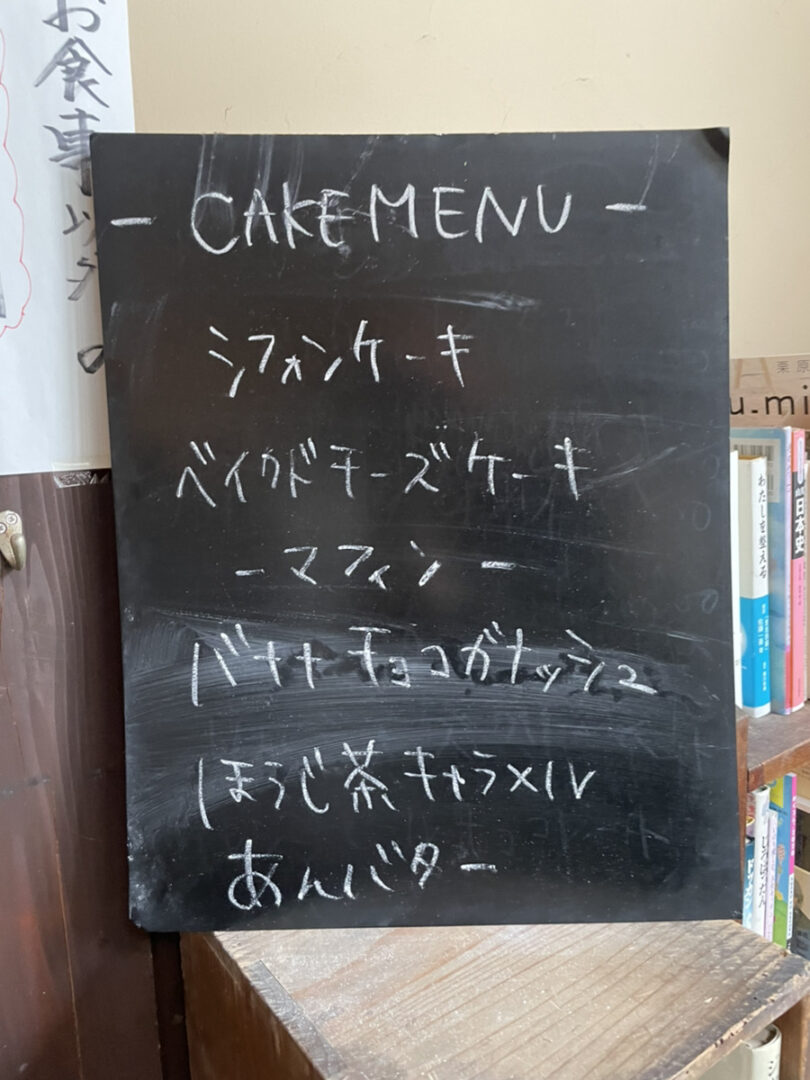 お食事以外の
- CAKE MENU -
シフォンケーキ
ベイクドチーズケーキ
- マフィン -
バナナチョコガナッシュ
ほうじ茶キャラメル
あんバター
栗原
u.mi
わたしを整える
日本史